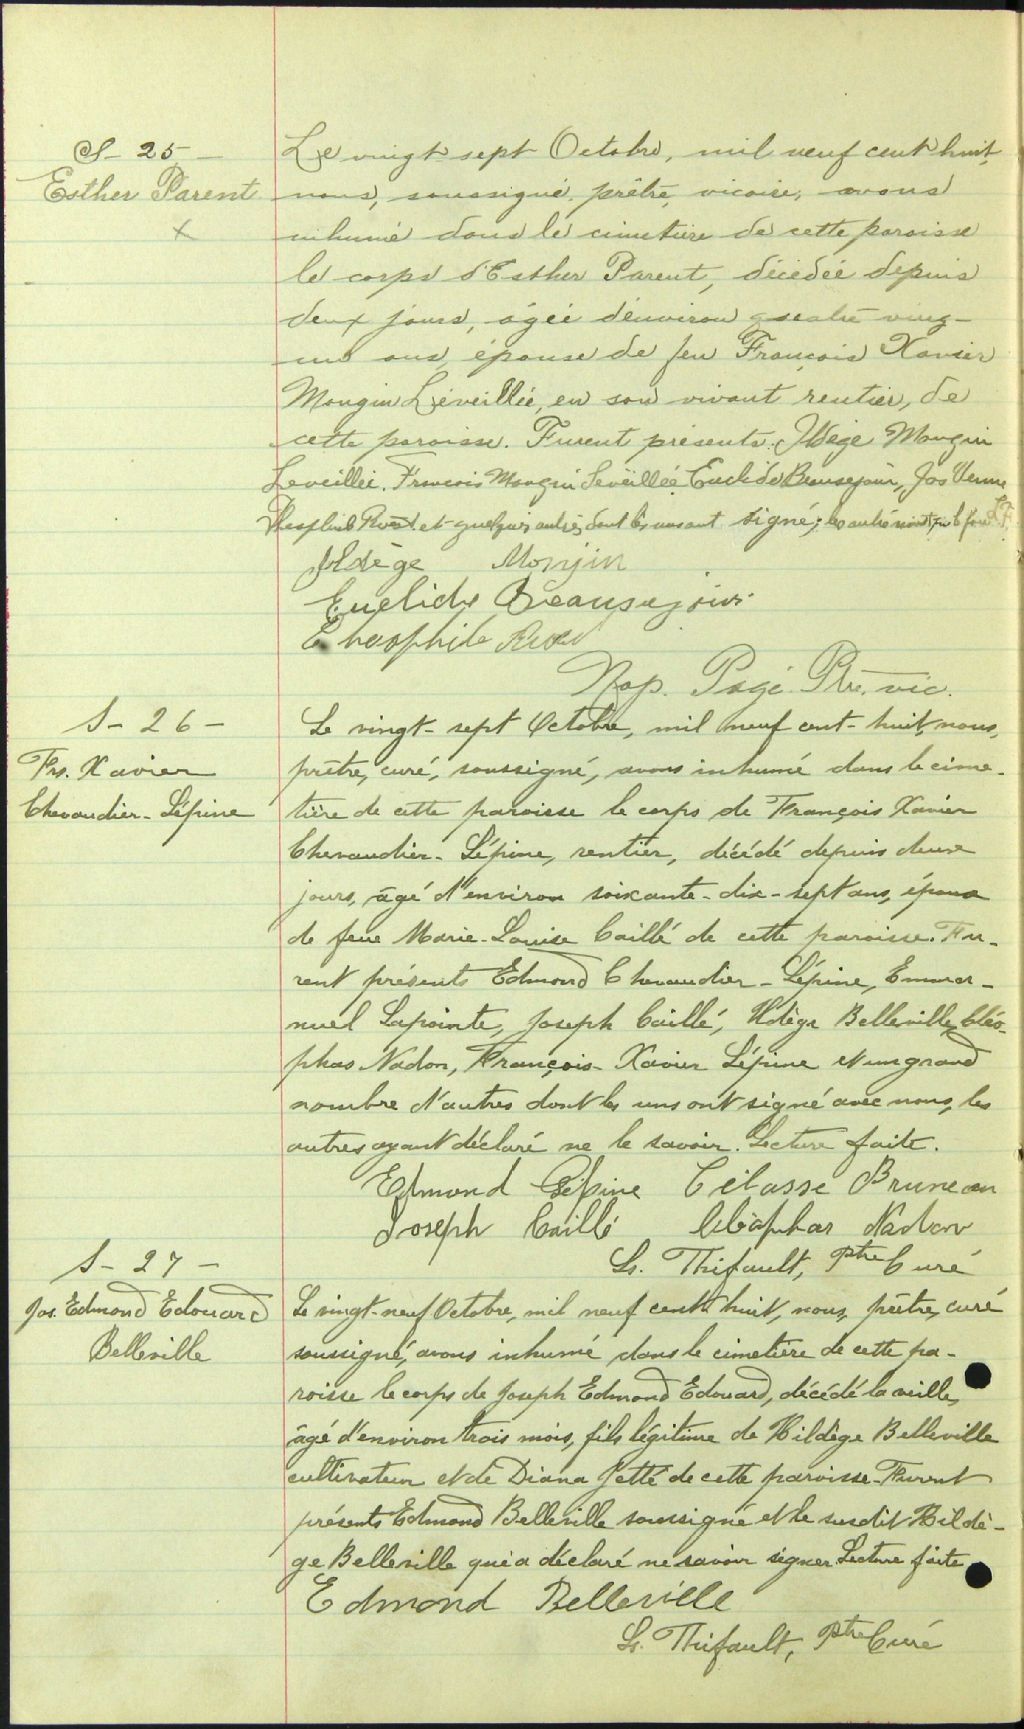 S - 25 -
Esther Parent
x
Le vingt sept Octobre, mil neuf cent huit,
nous, soussigné, prêtre, vicaire, avons
inhumé dans le cimetière de cette paroisse
le corps d'Esther Parent, décédée depuis
deux jours, âgée d'environ quatre ving-
ans, épouse de feu François Xavier
Mongin Léveillée, en son vivant rentier, de
cette paroisse. Furent présents Ildège Mongin
Leveillée, François Mongin Léveillée, Euclide Beausejour, Jos
et quelques autres, dont les uns ont signé; les autres
Ildège Monjin
Euclide Beausejour
Theophile
Nap. Pagé Ptre. vic.
S - 26 -
Frs. Xavier
Chevaudier - Lépine
Le vingt - sept Octobre, mil neuf cent - huit, nous,
prêtre, curé, soussigné, avons inhumé dans le cime-
tière de cette paroisse le corps de François Xavier
Chevaudier - Lépine, rentier, décédé depuis deux
jours, âgé d'environ soixante - dix - sept ans, époux
de feue Marie - Louise Caillé de cette paroisse. Fu-
rent présents Edmond Chevaudier - Lépine, Emma-
nuel Lapointe, Joseph Caillé, Hldège Belleville, Cléo-
phas Nadon, François - Xavier Lépine et un grand
nombre d'autres dont les uns ont signé avec nous, les
autres ayant déclaré ne le savoir. Lecture faite.
Edmond Lépine Télasse Bruneau
Joseph Caillé Cléophas Nadon
Ls. Thifault, Ptre Curé
S - 27 -
Jos. Edmond Edouard
Belleville
Le vingt - neuf Octobre, mil neuf cent huit, nous, prêtre, curé
soussigné, avons inhumé dans le cimetière de cette pa-
roisse le corps de Joseph Edmond Edouard, décédé la veille,
âgé d'environ trois mois, fils légitime de Hildège Belleville
cultivateur et de Diana Jetté de cette paroisse. Furent
présents Edmond Belleville soussigné et le susdit Hildè-
ge Belleville qui a déclaré ne savoir signer. Lecture faite.
Edmond Belleville
Ls. Thifault, Ptre Curé